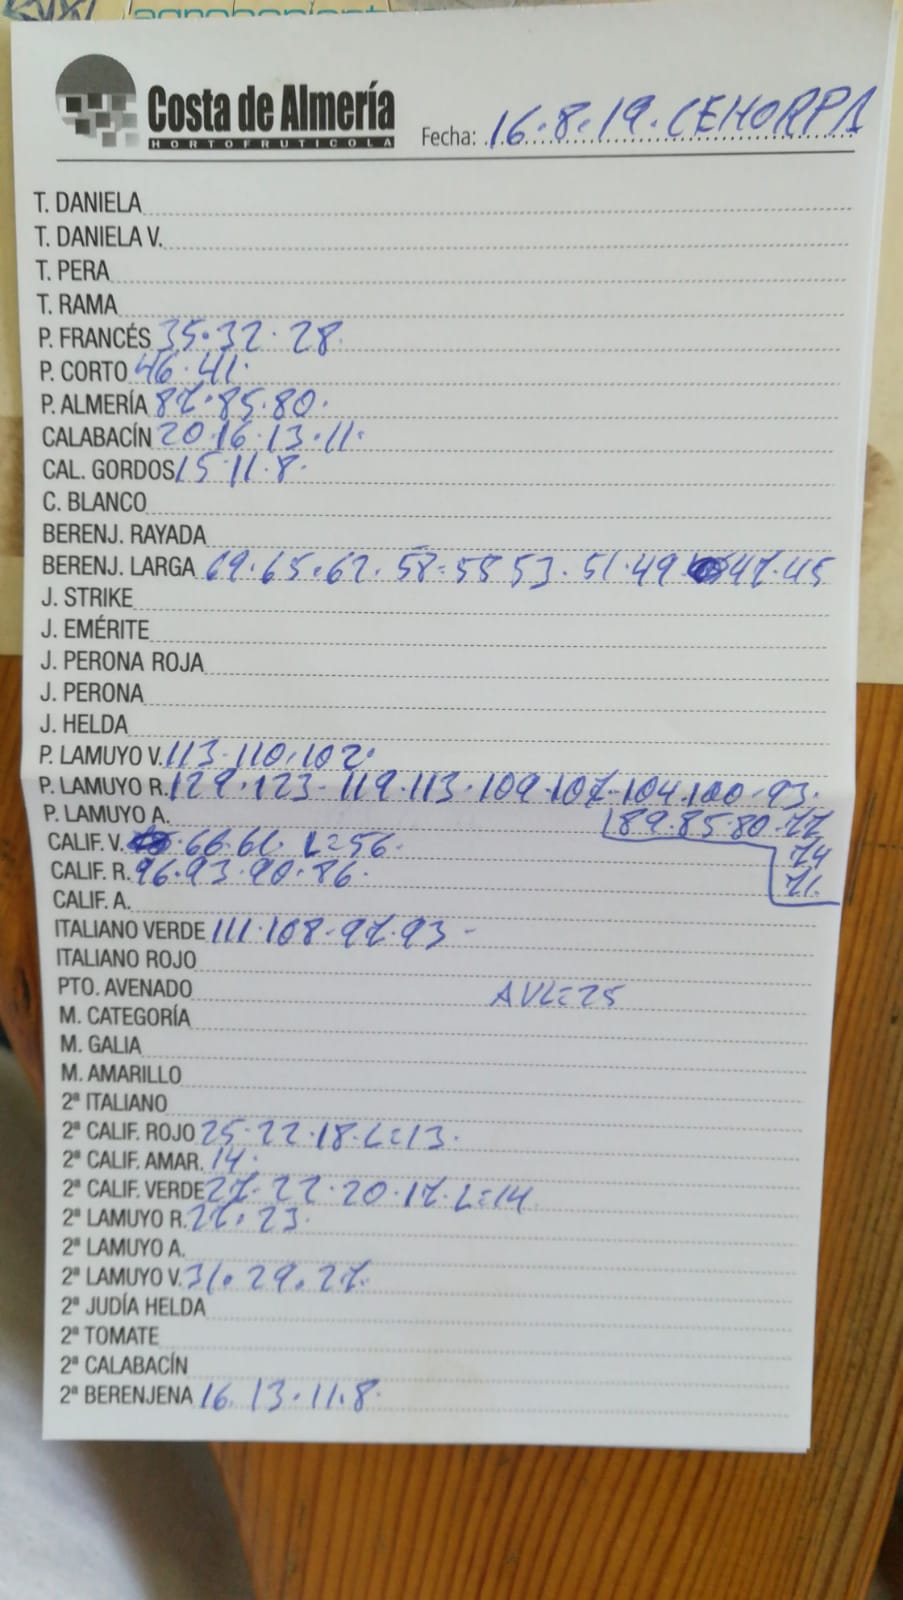 Costa de Almería
HORTOFRUTICOLA
Fecha: 16.8.19. CEHORPA
T. DANIELA
T. DANIELA V.
T. PERA
T. RAMA
P. FRANCÉS 35.32.28
P. CORTO 46.41.
P. ALMERÍA 87.85.80.
CALABACÍN 20.16.13.11.
CAL. GORDOS 15.11.8.
C. BLANCO
BERENJ. RAYADA
BERENJ. LARGA 69.65.62.58=55 53.51.49 47.45
J. STRIKE
J. EMÉRITE
J. PERONA ROJA
J. PERONA
J. HELDA
P. LAMUYO V. 113.110.102.
P. LAMUYO R. 129.123-119.113.109.107-104.100.93.
P. LAMUYO A. 89.85.80.77
74
71.
CALIF. V. .66.61. L=56.
CALIF. R. 96.93.90.86.
CALIF. A.
ITALIANO VERDE 111.108.97.93-
ITALIANO ROJO
PTO. AVENADO AVL=25
M. CATEGORÍA
M. GALIA
M. AMARILLO
2ª ITALIANO
2ª CALIF. ROJO 25.22.18.L=13.
2ª CALIF. AMAR. 14.
2ª CALIF. VERDE 27.22.20.17.L=14
2ª LAMUYO R. 27.23.
2ª LAMUYO A.
2ª LAMUYO V. 31.29.27.
2ª JUDÍA HELDA
2ª TOMATE
2ª CALABACÍN
2ª BERENJENA 16.13.11.8.